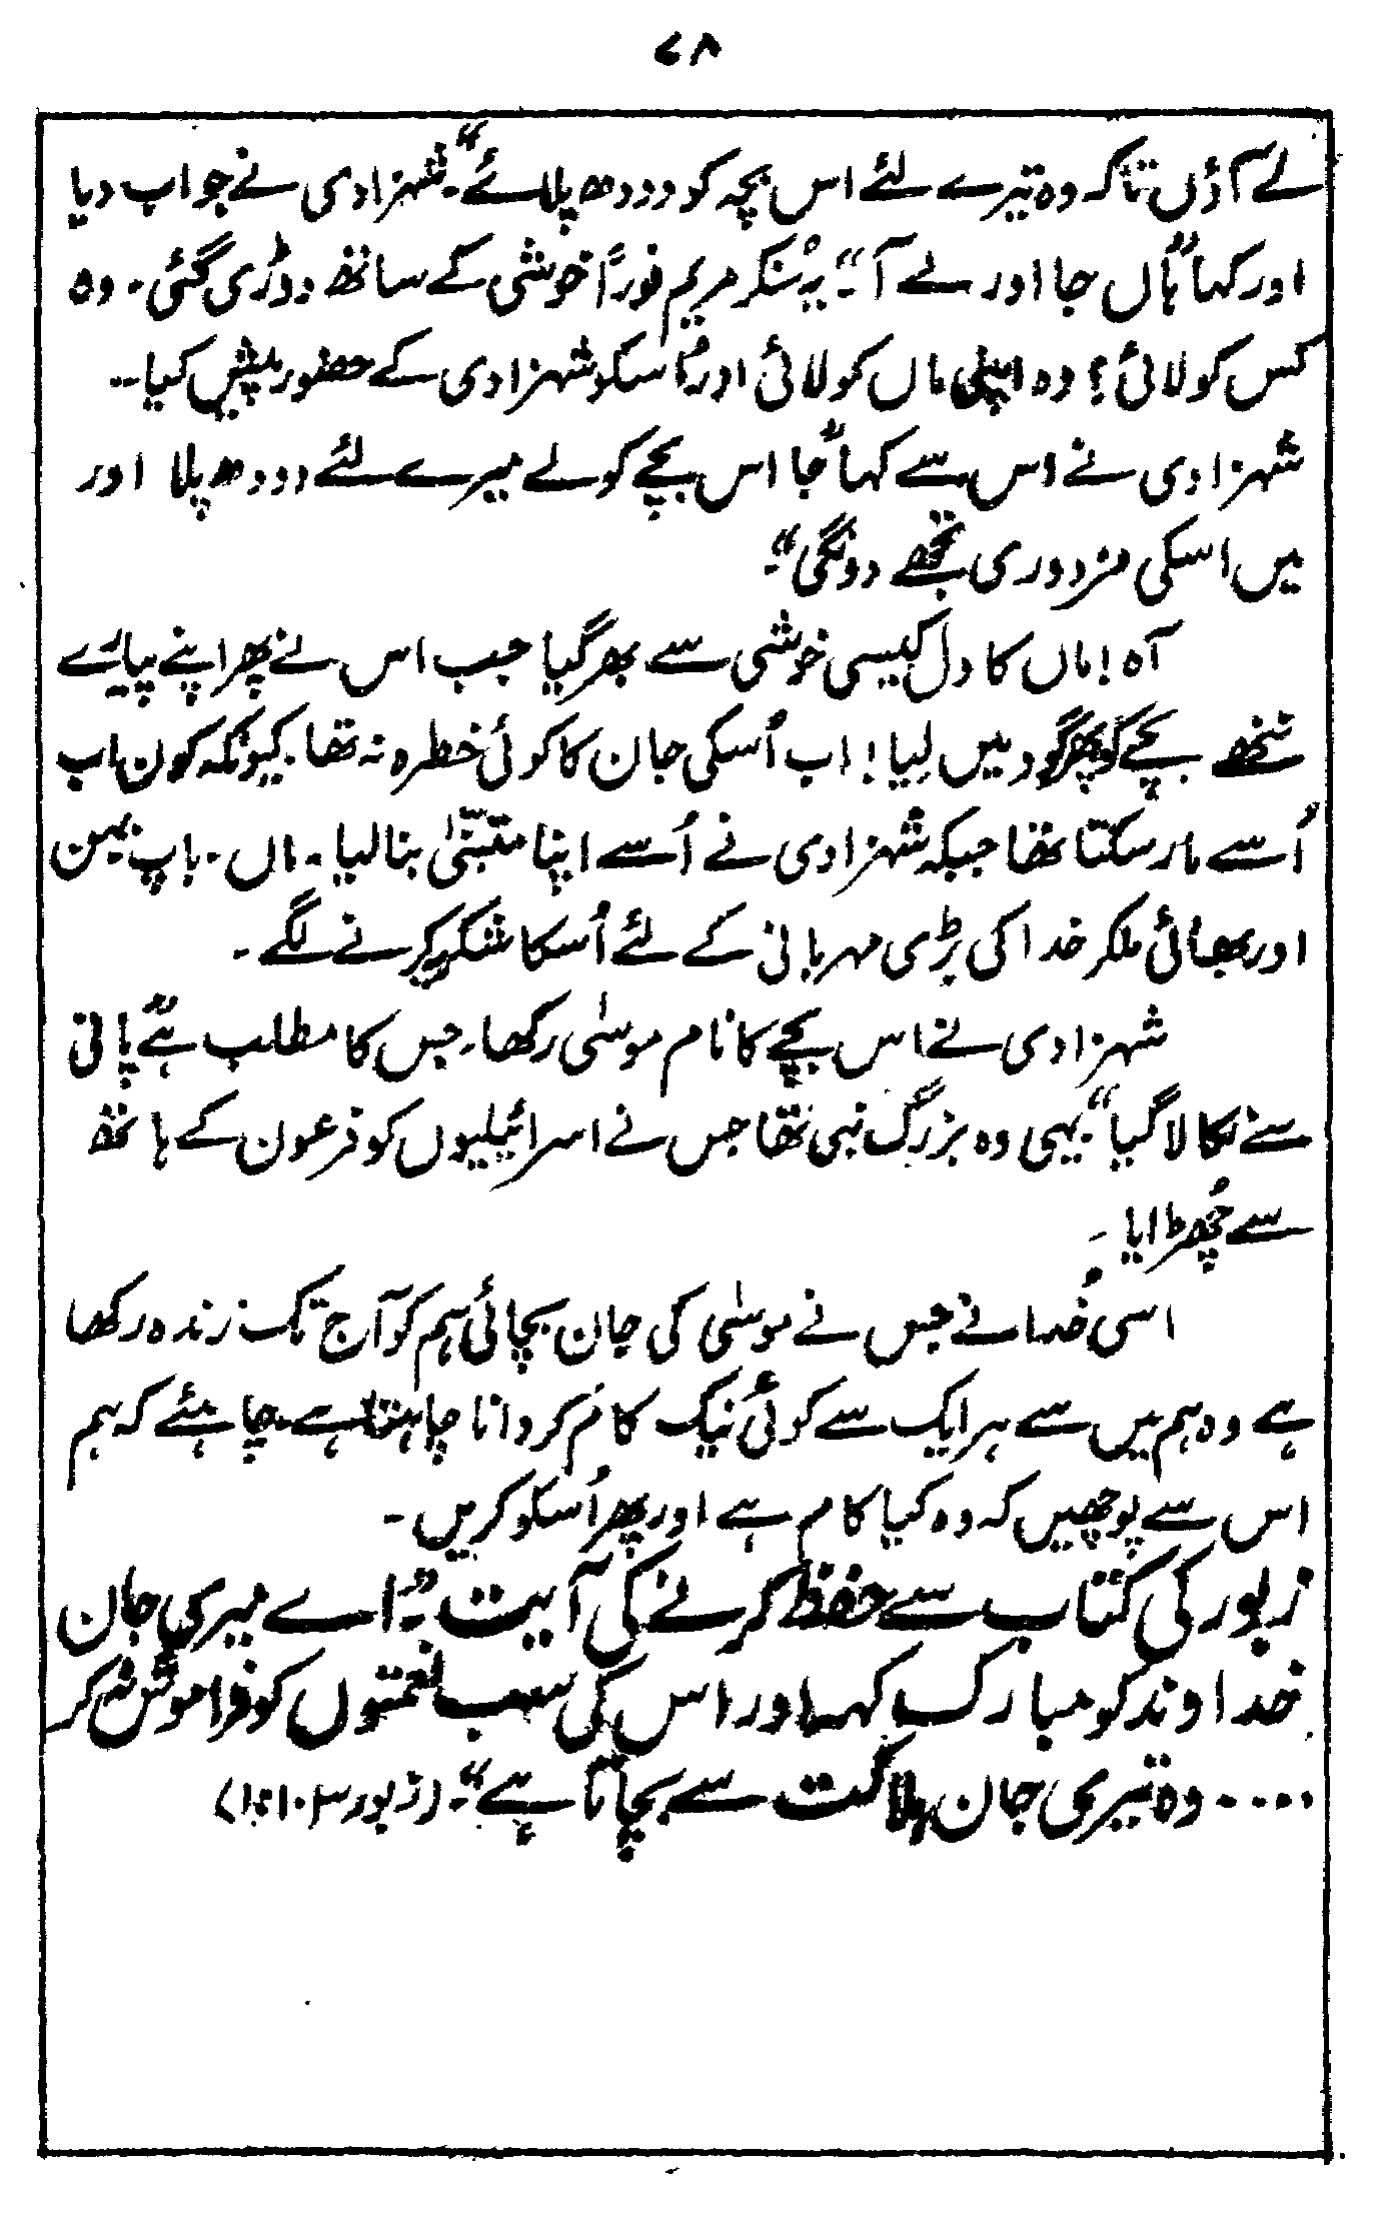 ۷۸
لے آؤں تاکہ وہ تیرے لئے اس بچہ کو دودھ پلائے“۔ شہزادی نے جواب دیا
اور کہا ”ہاں جا اور لے آ“۔ یہ سُنکر مریم فوراً خوشی کے ساتھ دوڑی گئی۔ وہ
کس کو لائی؟ وہ اپنی ماں کو لائی اور اُسکو شہزادی کے حضور پیش کیا۔
شہزادی نے اس سے کہا ”جا اس بچے کو لے میرے لئے دودھ پلا اور
میں اسکی مزدوری تجھے دونگی“۔
آہ! ماں کا دل کیسی خوشی سے بھر گیا جب اس نے پھر اپنے پیارے
ننھے بچے کو پھر گود میں لیا! اب اُسکی جان کا کوئی خطرہ نہ تھا۔ کیونکہ کون اب
اُسے مار سکتا تھا جبکہ شہزادی نے اُسے اپنا متبنّیٰ بنا لیا۔ ماں۔ باپ بہن
اور بھائی ملکر خدا کی بڑی مہربانی کے لئے اُسکا شکر کرنے لگے۔
شہزادی نے اس بچے کا نام موسٰی رکھا۔ جس کا مطلب ہے ”پانی
سے نکالا گیا“۔ یہی وہ بزرگ نبی تھا جس نے اسرائیلیوں کو فرعون کے ہاتھ
سے چُھڑایا۔
اسی خُدا نے جس نے موسٰی کی جان بچائی ہم کو آج تک زندہ رکھا
ہے وہ ہم میں سے ہر ایک سے کوئی نیک کام کروانا چاہتا ہے۔ چاہئے کہ ہم
اس سے پوچھیں کہ وہ کیا کام ہے اور پھر اُسکو کریں۔
زبور کی کتاب سے حفظ کرنے کی آیت :۔ ”اے میری جان
خداوند کو مبارک کہہ اور اس کی سب نعمتوں کو فراموش نہ کر
.... وہ تیری جان ہلاکت سے بچاتا ہے“۔ (زبور ۱۰۳:۱)